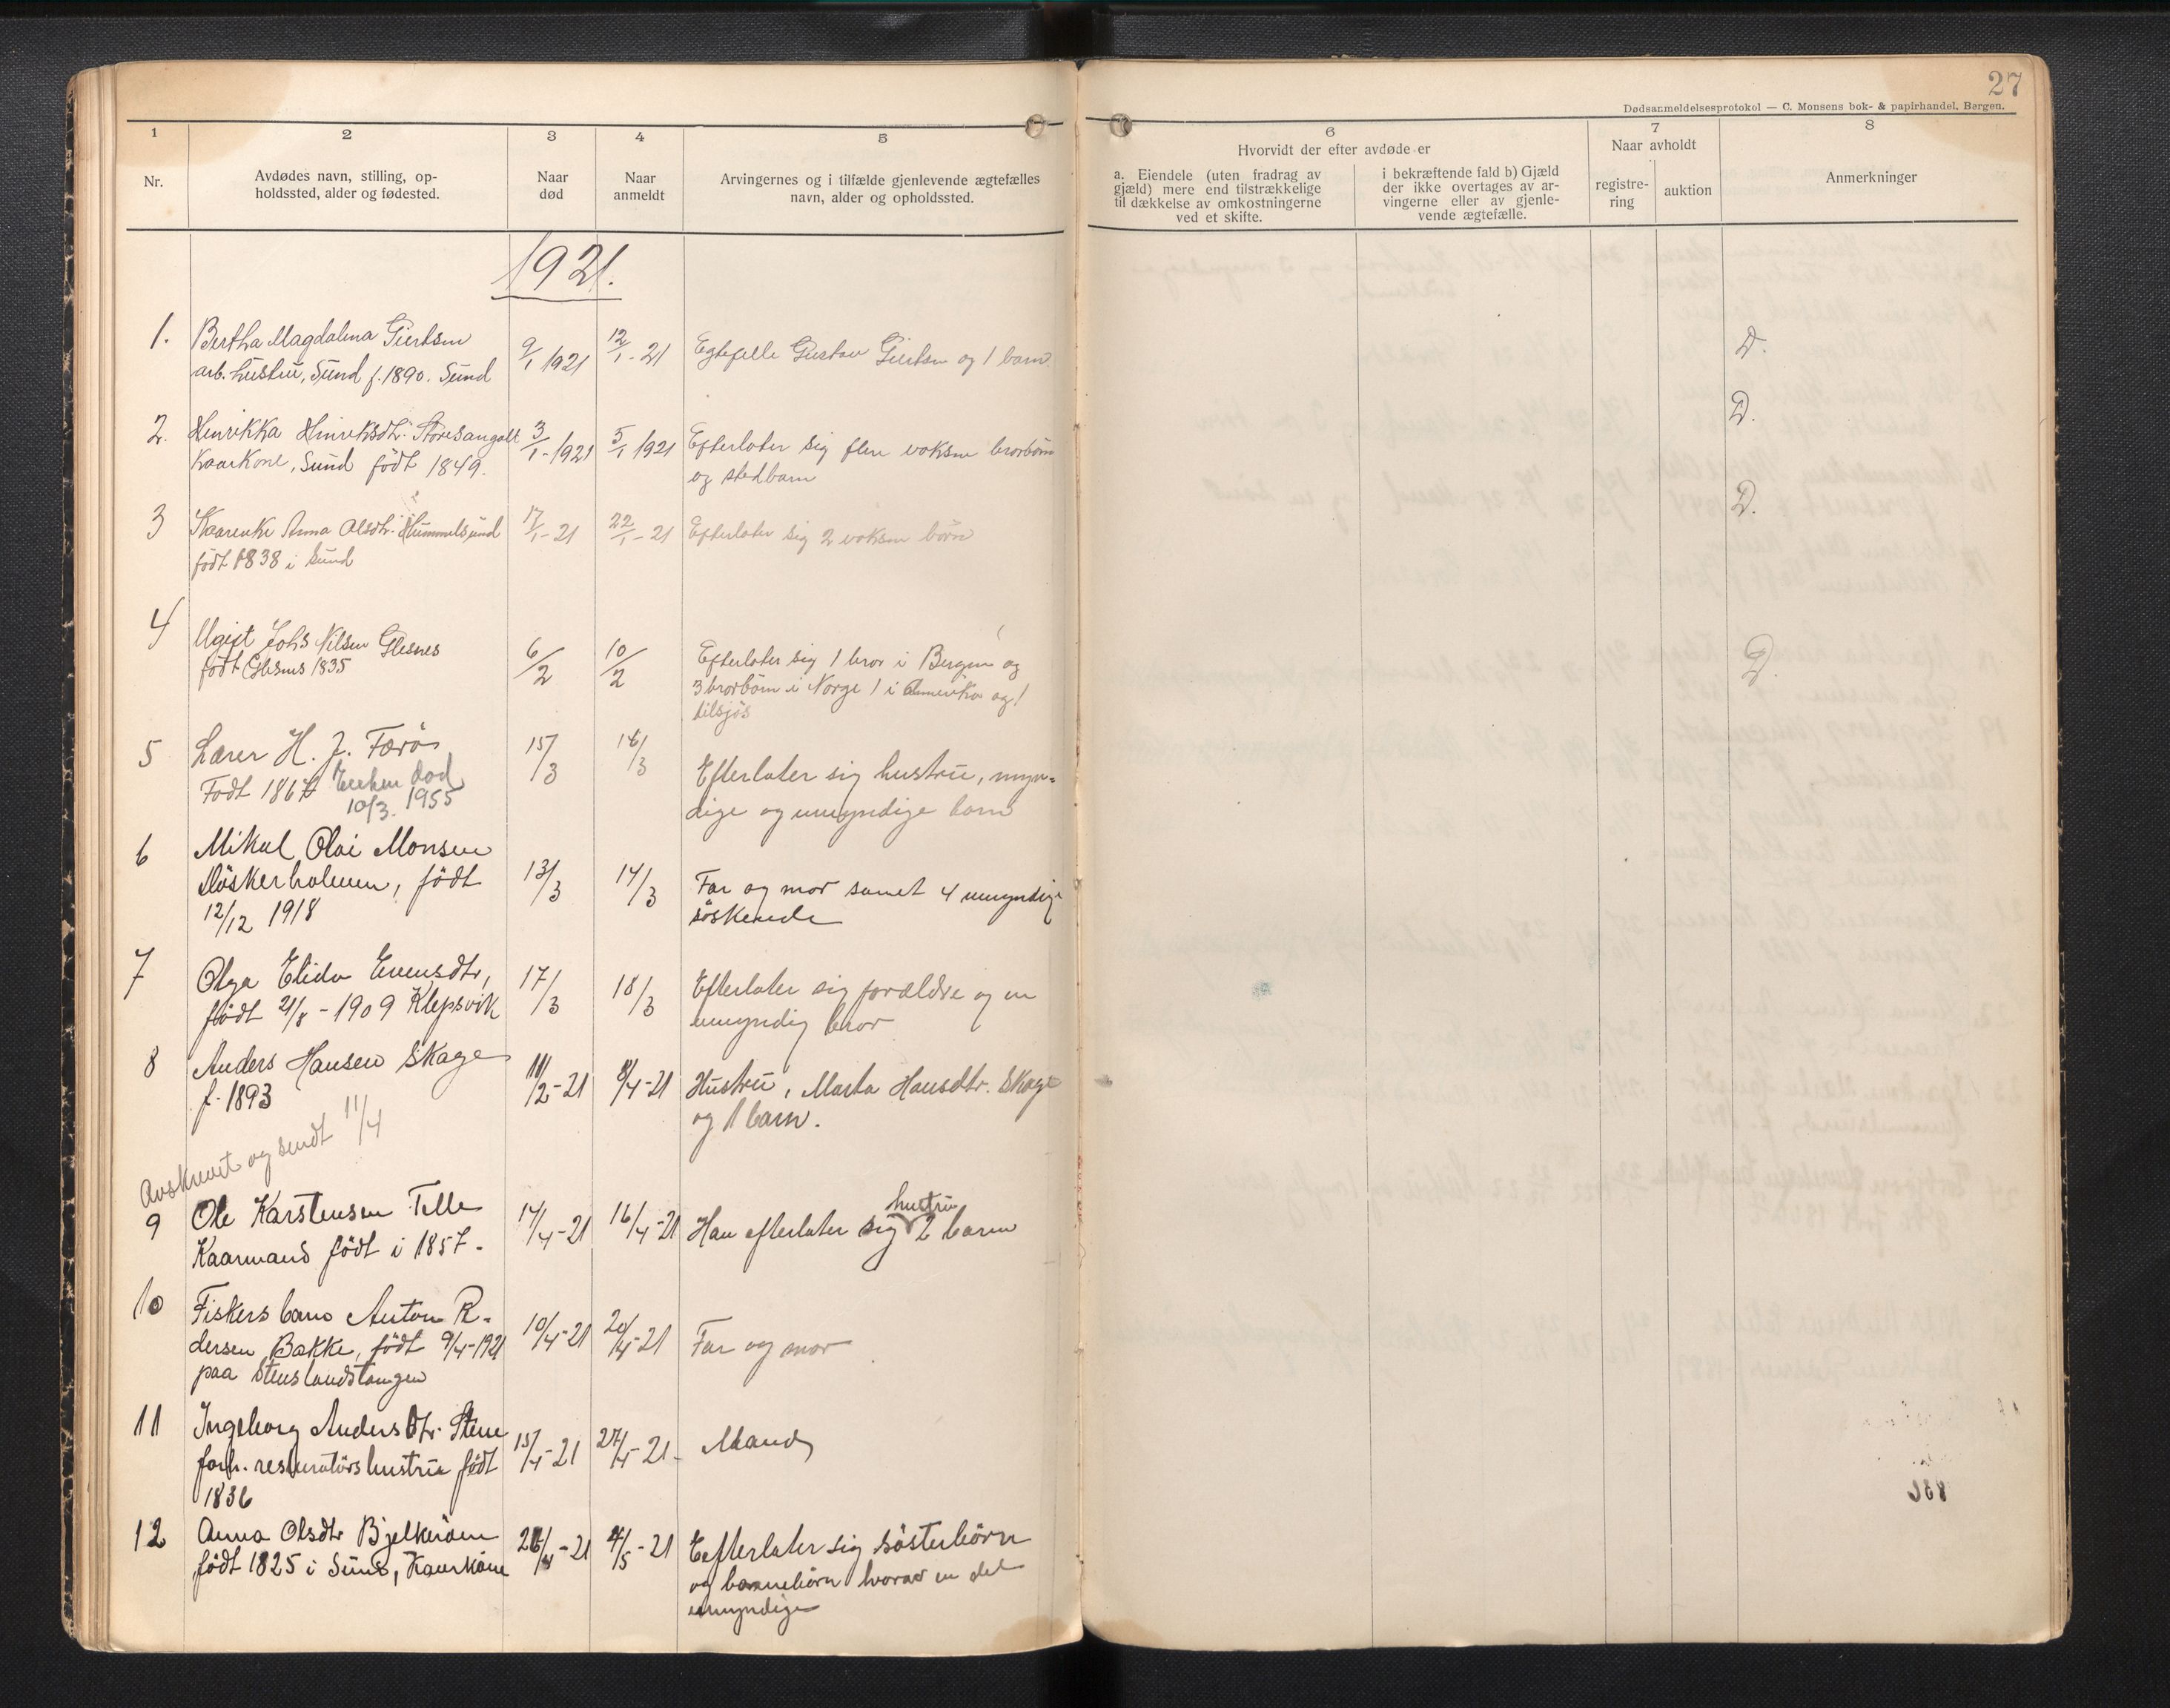 27
Dødsanmeldelsesprotokol — C. Monsens bok- & papirhandel, Bergen.
1 2 3 4 5 6 7 8
Nr.
Avdødes navn, stilling, op-
holdssted, alder og fødested.
Naar
død
Naar
anmeldt
Arvingernes og i tilfælde gjenlevende ægtefælles
navn, alder og opholdssted.
Hvorvidt der efter avdøde er
a. Eiendele (uten fradrag av
gjæld) mere end tilstrækkelige
til dækkelse av omkostningerne
ved et skifte.
i bekræftende fald b) Gjæld
der ikke overtages av ar-
vingerne eller av gjenle-
vende ægtefælle.
Naar avholdt
registre-
ring
auktion
Anmerkninger
1921.
1. Bertha Magdalena Giertsen
arb. hustru, Sund f. 1890. Sund
9/1 1921 12/1 - 21 Egtefelle Gustav Giertsen og 1 barn D.
2. Henrikka Henriksdtr. Storesangolt
Kaarkone, Sund født 1849.
3/1 - 1921 5/1 1921 Efterlater sig flere voksne brorbörn
og stedbarn D.
3 Kaarenke Anna Olsdtr. Hummelsund
født 1838 i Sund
17/1 - 21 22/1 - 21 Efterlater sig 2 voksne börn D.
4 Ugift Johs Nilsen Glesnes
født Glesnes 1835
6/2 10/2 Efterlater sig 1 bror i Bergen og
3 brorbörn i Norge 1 i Amerika og 1
tilsjøs D.
5 Lærer H. J. Færö
Født 1867 Enken död
10/3. 1955
15/3 16/3 Efterlater sig hustru, myn-
dige og umyndige barn
6 Mikal Olai Monsen
født
12/12 1918
13/3 14/3 Far og mor samt 4 umyndige
söskende
7 Olga Elida Evensdtr,
født 21/8 - 1909 Klepsvik
17/3 18/3 Efterlater sig forældre og en
umyndig bror
8 Anders Hansen Skage
f. 1893
11/2 - 21 8/4 - 21 Hustru, Marta Hansdtr. Skage
og 1 barn.
Avskrevet og sendt 11/4
9 Ole Karstensen Telle
Kaarmand født i 1857.
14/4 - 21 16/4 - 21 Han efterlater sig hustru 2 barn
10 Fiskers barn Anton R-
dersen Bakke, født 9/4 - 1921
paa Steinslandstangen
10/4 - 21 20/4 - 21 Far og mor
11 Ingeborg Andersdtr. Stene
forh. hustru født
1836
15/4 - 21 27/4 - 21. Mand
12 Anna Olsdtr
født 1825 i Sund, Kaarkone
26/4 - 21 4/5 - 21 Efterlater sig sösterbörn
og barnebörn hvorav en del
umyndige